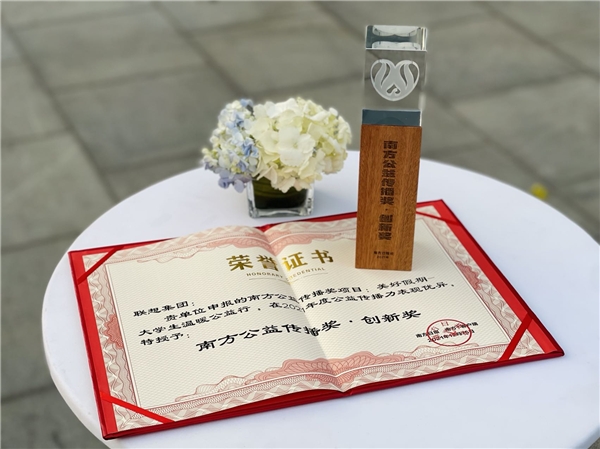 荣誉证书
HONORARY CREDENTIAL
联想集团：
贵单位申报的南方公益传播奖项目：美好假期—
大学生温暖公益行，在202 年度公益传播力表现优异，
特授予：
南方公益传播奖·创新奖
南方公益传播奖·创新奖